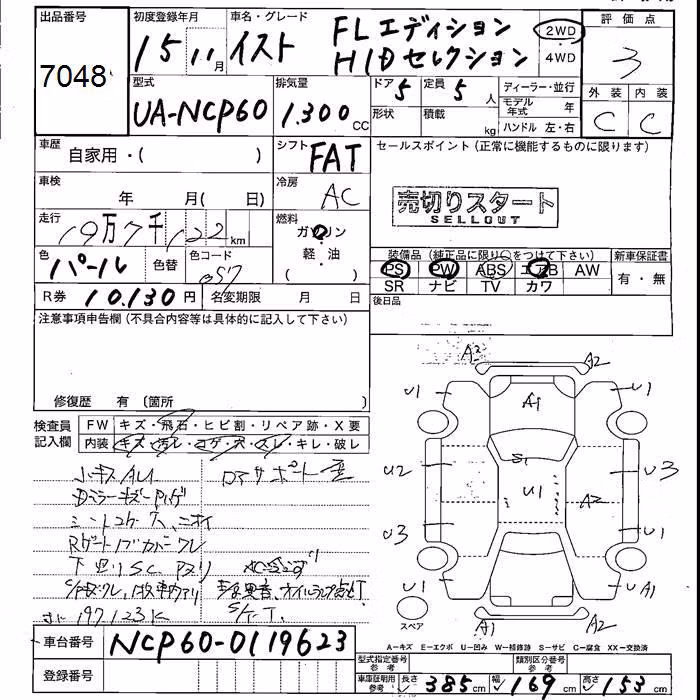 出品番号
7048
初度登録年月
15 11月
車名・グレード
イスト FLエディション
HIDセレクション
2WD
4WD
評価点
3
外装 内装
C C
型式
UA-NCP60
排気量
1.300 CC
ドア 5
定員 5人
形状
積載 kg
ディーラー・並行
モデル年式 年
ハンドル 左・右
車歴
自家用・( )
シフト
FAT
セールスポイント(正常に機能するものに限ります)
売切りスタート
SELLOUT
車検
年 月( 日)
冷房
AC
走行
19万7千122km
燃料
ガソリン
軽・油
( )
色
パール
色替
色コード
057
装備品(純正品に限り○をつけて下さい)
PS PW ABS エアB AW
SR ナビ TV カワ
新車保証書
有・無
R券 10.130円
名変期限 月 日
後日品
注意事項申告欄(不具合内容等は具体的に記入して下さい)
修復歴 有 〔箇所 〕
検査員
記入欄
FW キズ・飛石・ヒビ割・リペア跡・X要
内装 キズ・汚レ・コゲ・穴・スレ・キレ・破レ
小キズAU1
ロアサポート歪
Dミラーキズ
シートコゲ穴、ニオイ
下回りSC
197.123K
A2 A2
U1 A1 U1
S1
U2 U1 A2 U3
U3 U1
U1 UA1
A1 A1
スペア
A-キズ E-エクボ U-凹み W-補修跡 S-サビ C-腐食 XX-交換済
車台番号 NCP60-0119623
登録番号
型式指定番号
参考
類別区分番号
参考
車庫証明用
参考
長さ 385cm
幅 169cm
高さ 153cm